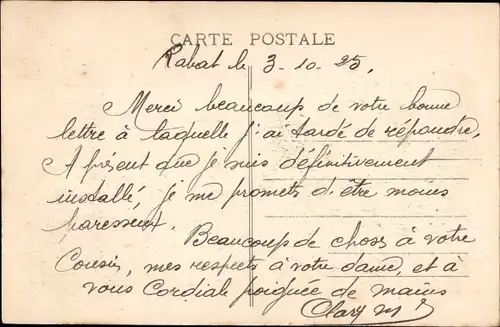 CARTE POSTALE
Rabat le 3-10-25,
Merci beaucoup de votre bonne
lettre à laquelle j'ai tardé de répondre,
A présent que je suis définitivement
installé, je me promets d'être moins
paresseux.
Beaucoup de choses à votre
Cousin, mes respects à votre dame, et à
vous Cordiale poignée de mains